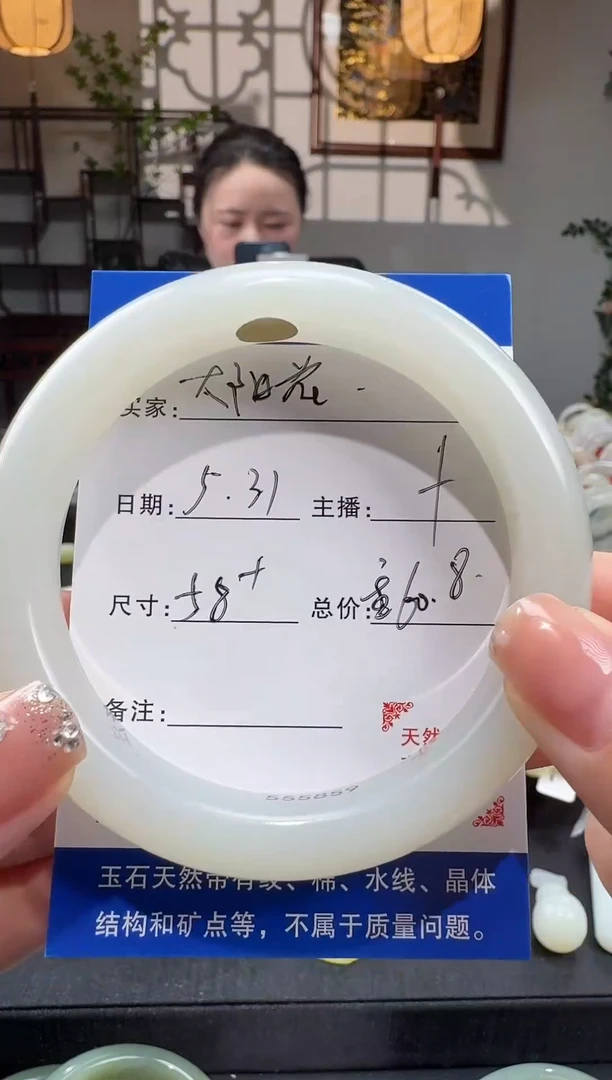 买家: 太阳花.
日期: 5.31 主播: 十
尺寸: 58+ 总价: 重60.8.
备注:
天然
555859
玉石天然带有纹、棉、水线、晶体
结构和矿点等，不属于质量问题。